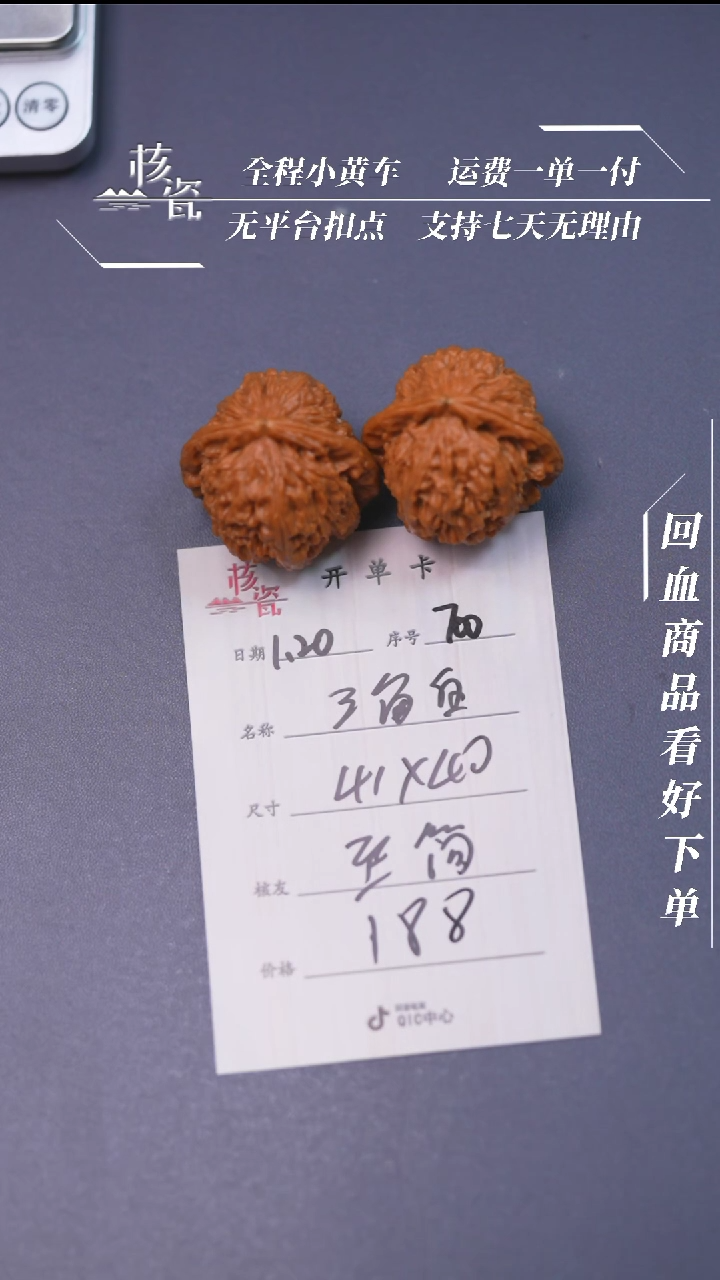 清零
核瓷
全程小黄车 运费一单一付
无平台扣点 支持七天无理由
回血商品看好下单
核瓷 开单卡
日期 1.20 序号 700
名称 3
尺寸 41X40
核友 至简
价格 188
QIC中心